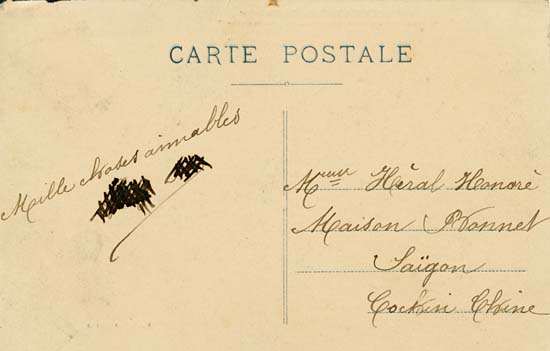 CARTE POSTALE
Mille choses aimables
Mme Héral Honoré
Maison
Saïgon
Cochin Chine